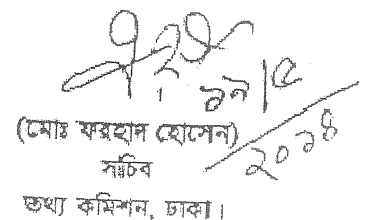 ১৯/৫
২০১৪
(মোঃ ফরহাদ হোসেন)
সচিব
তথ্য কমিশন, ঢাকা।